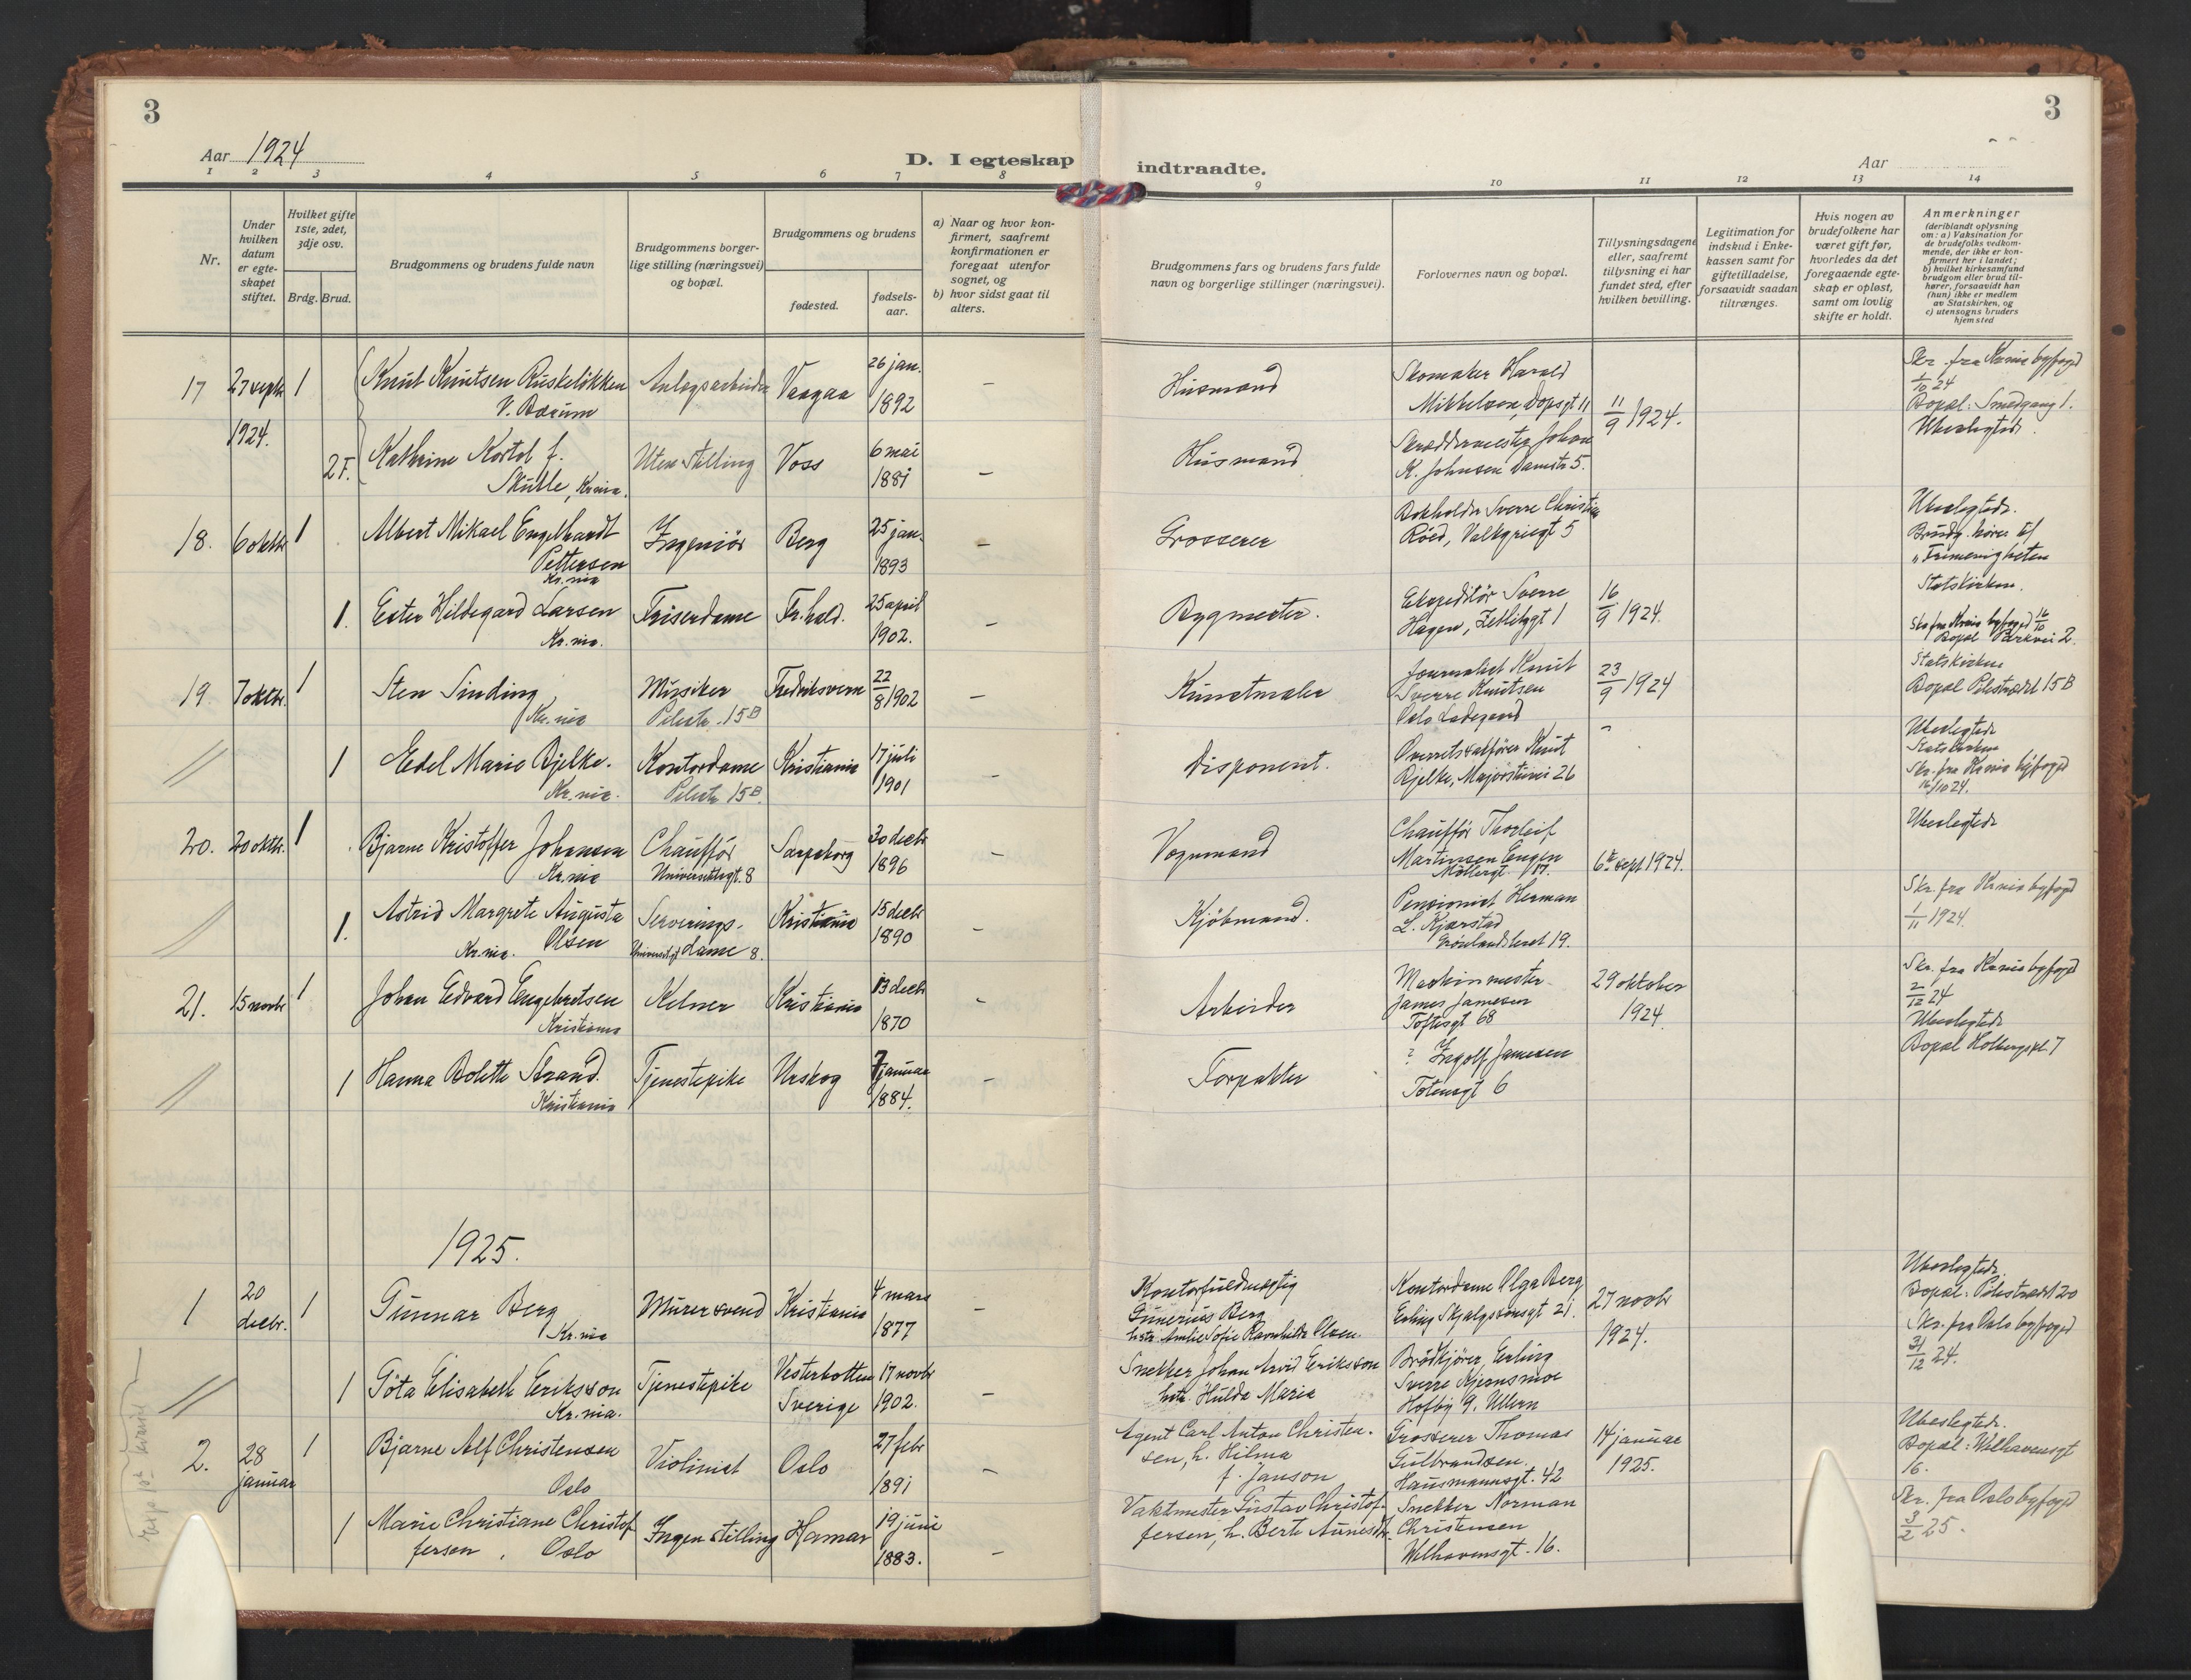 3
Aar 1924
D. I egteskap
1 2 3 4 5 6 7 8
Nr.
Under hvilken datum er egte-skapet stiftet.
Hvilket gifte 1ste, 2det, 3dje osv.
Brdg. Brud.
Brudgommens og brudens fulde navn
Brudgommens borger-lige stilling (næringsvei) og bopæl.
Brudgommens og brudens
fødested.
fødsels-aar.
a) Naar og hvor kon-firmert, saafremt konfirmationen er foregaat utenfor sognet, og
b) hvor sidst gaat til alters.
17 27 septr 1 Knut Knutsen Ruskeløkken Anlægsarbeider Vaagaa 26 jan. –
V. Bærum 1892
1924.
2 F. Kathrine Kortol f. Uten stilling Voss 6 mai –
Skutle, Kr.nia. 1881
18. 6 oktbr 1 Albert Mikael Engelhardt Ingeniør Berg 25 jan. –
Pettersen 1893
Kr.nia
1. Ester Hildegard Larsen Friserdame Fr.hald. 25 april –
Kr.nia. 1902.
19. 7 oktbr. 1 Sten Sinding, Musiker Fredriksvern 22/8 1902 –
Kr.nia Pilestr. 15B
1 Edel Marie Bjelke. Kontordame Kristiania 17 juli –
Kr.nia. Pilestr 15B. 1901
20. 20 oktbr. 1 Bjarne Kristoffer Johansen Chauffør Sarpsborg 30 decbr –
Kr.nia Universitetsgt. 8 1896
1. Astrid Margrete Augusta Serverings- Kristiania 15 decbr –
Kr.nia. Olsen dame 8. 1890
21. 15 novbr 1 Johan Edvard Engebretsen Kelner Kristiania 13 decbr –
Kristiania 1870
1 Hanna Bolette Strand. Tjenestepike Urskog 7 januar –
Kristiania 1884.
1925.
1 20 decbr. 1 Gunnar Berg Murersvend Kristiania 4 mars –
Kr.nia 1877
1 Göta Elisabeth Eriksson Tjenestepike Vesterbotten 17 novbr –
Kr.nia. Sverige 1902.
2. 28 januar 1 Bjarne Alf Christensen Violinist Oslo 27 febr –
Oslo 1891
1 Marie Christiane Christof Ingen stilling Hamar 19 juni –
fersen, Oslo 1883.
3
indtraadte.
Aar
9 10 11 12 13 14
Brudgommens fars og brudens fars fulde navn og borgerlige stillinger (næringsvei).
Forlovernes navn og bopæl.
Tillysningsdagene eller, saafremt tillysning ei har fundet sted, efter hvilken bevilling.
Legitimation for indskud i Enke-kassen samt for giftetilladelse, forsaavidt saadan tiltrænges.
Hvis nogen av brudefolkene har været gift før, hvorledes da det foregaaende egte-skap er opløst, samt om lovlig skifte er holdt.
Anmerkninger
(deriblandt oplysning om: a) Vaksination for de brudefolks vedkom-mende, der ikke er kon-firmert her i landet; b) hvilket kirkesamfund brudgom eller brud til-hører, forsaavidt han (hun) ikke er medlem av Statskirken, og c) utensogns bruders hjemsted
Husmand
Skomaker Harald
Mikkelsen, Dopsgt 11
11/9 1924.
Skr. fra Krnia byfogd
1/10 24
Bopæl: Smedgang 1.
Ubeslegtede.
Husmand
Skræddermester Johan
K. Johnsen Damstr 5.
Grosserer
Bokholder Sverre Christian
Röed, Valkyriegt 5
Ubeslegtede.
Brudg. hører til
"Frimenigheten
Statskirken.
Bygmester.
Ekspeditör Sverre
Hagen, Zetlitzgt 1
16/9 1924.
Skr fra Krnia byfogd 16/10
Bopæl Parkvei 2.
Kunstmaler
Journalist Knut
Sverre Knutsen
Oslo Ladegaard
23/9 1924
Statskirken
Bopæl Pilestrædet 15 B
Disponent.
Overretssakfører Knut
Bjelke, Majorstuvei 26
Ubeslegtede
Statskirken
Skr. fra Krnia byfogd
16/10 24.
Vognmand
Chauffør Thorleif
Martinsen Engen
Møllergt.
6te sept 1924.
Ubeslegtede
Kjøbmand.
Pensionist Herman
L. Kjærstad
Grønlandsleret 19.
Skr. fra Krnia byfogd
1/11 1924.
Arbeider
Maskinmester
James Jamesen
Toftesgt 68
29 oktober
1924.
Skr. fra Krnia byfogd
2/12 24
Ubeslegtede
Bopæl Holbergspl. 7
Forpakter
? Ingolf Jamesen
Totensgt 6
Kontorfuldmægtig
Gunerius Berg
hstr. Amlie Sofie Ravnhilde Olsen.
Kontordame Olga Berg
Erling Skjalgssonsgt 21.
27 novbr
1924.
Ubeslegtede.
Bopæl: Pilestrædet 20
Skr. fra Oslo byfogd
31/12 24.
Snekker Johan Arvid Eriksson
hstr. Hulda Maria
Brødkjører Erling
Sverre Kjernsmoe
Hofby 9. Ullern
Agent Carl Anton Christen-
sen, h. Hilma
f. Janson
Grosserer Thomas
Gulbrandsen
Hausmannsgt. 42
14 januar
1925.
Ubeslegtede.
Bopæl: Welhavensgt
16.
Vaktmester Gustav Christof-
fersen, h. Berte Aunesdtr.
Snekker Norman
Christensen
Welhavensgt. 16.
Skr. fra Oslo byfogd
3/2 25.